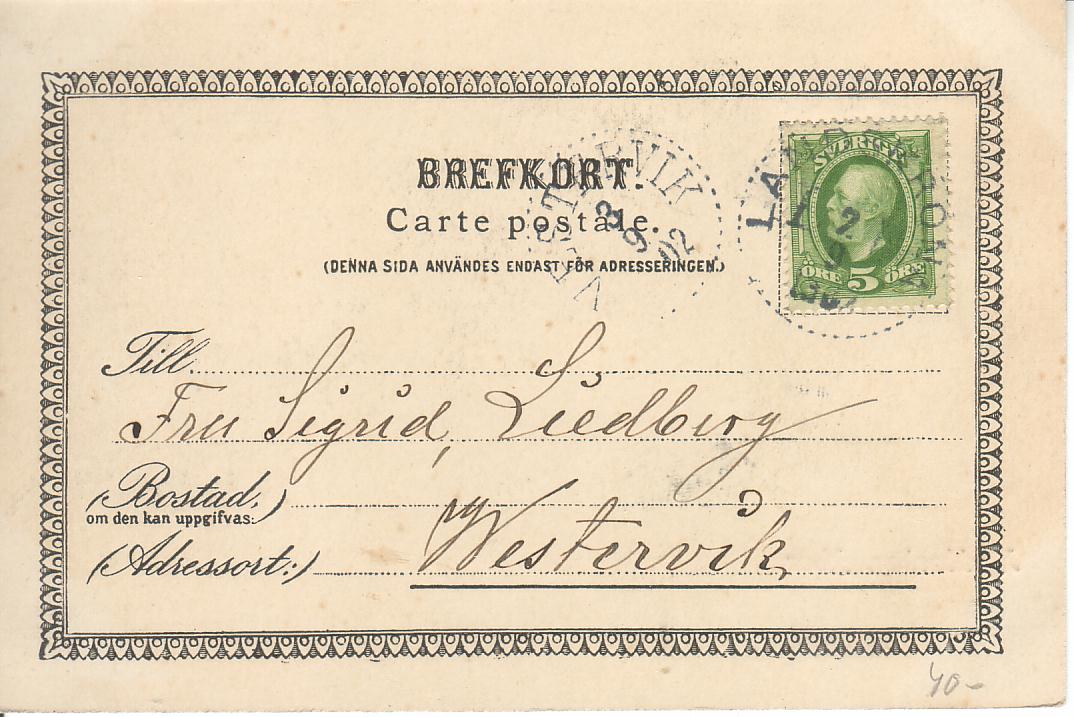 BREFKORT.
Carte postale.
(DENNA SIDA ANVÄNDES ENDAST FÖR ADRESSERINGEN.)
VESTERVIK
3
9
02
SVERIGE
ÖRE 5 ÖRE
LANDSKRONA
2
9
Till
Fru Sigrid Liedberg
(Bostad,)
om den kan uppgifvas:
Westervik
(Adressort:)
40-